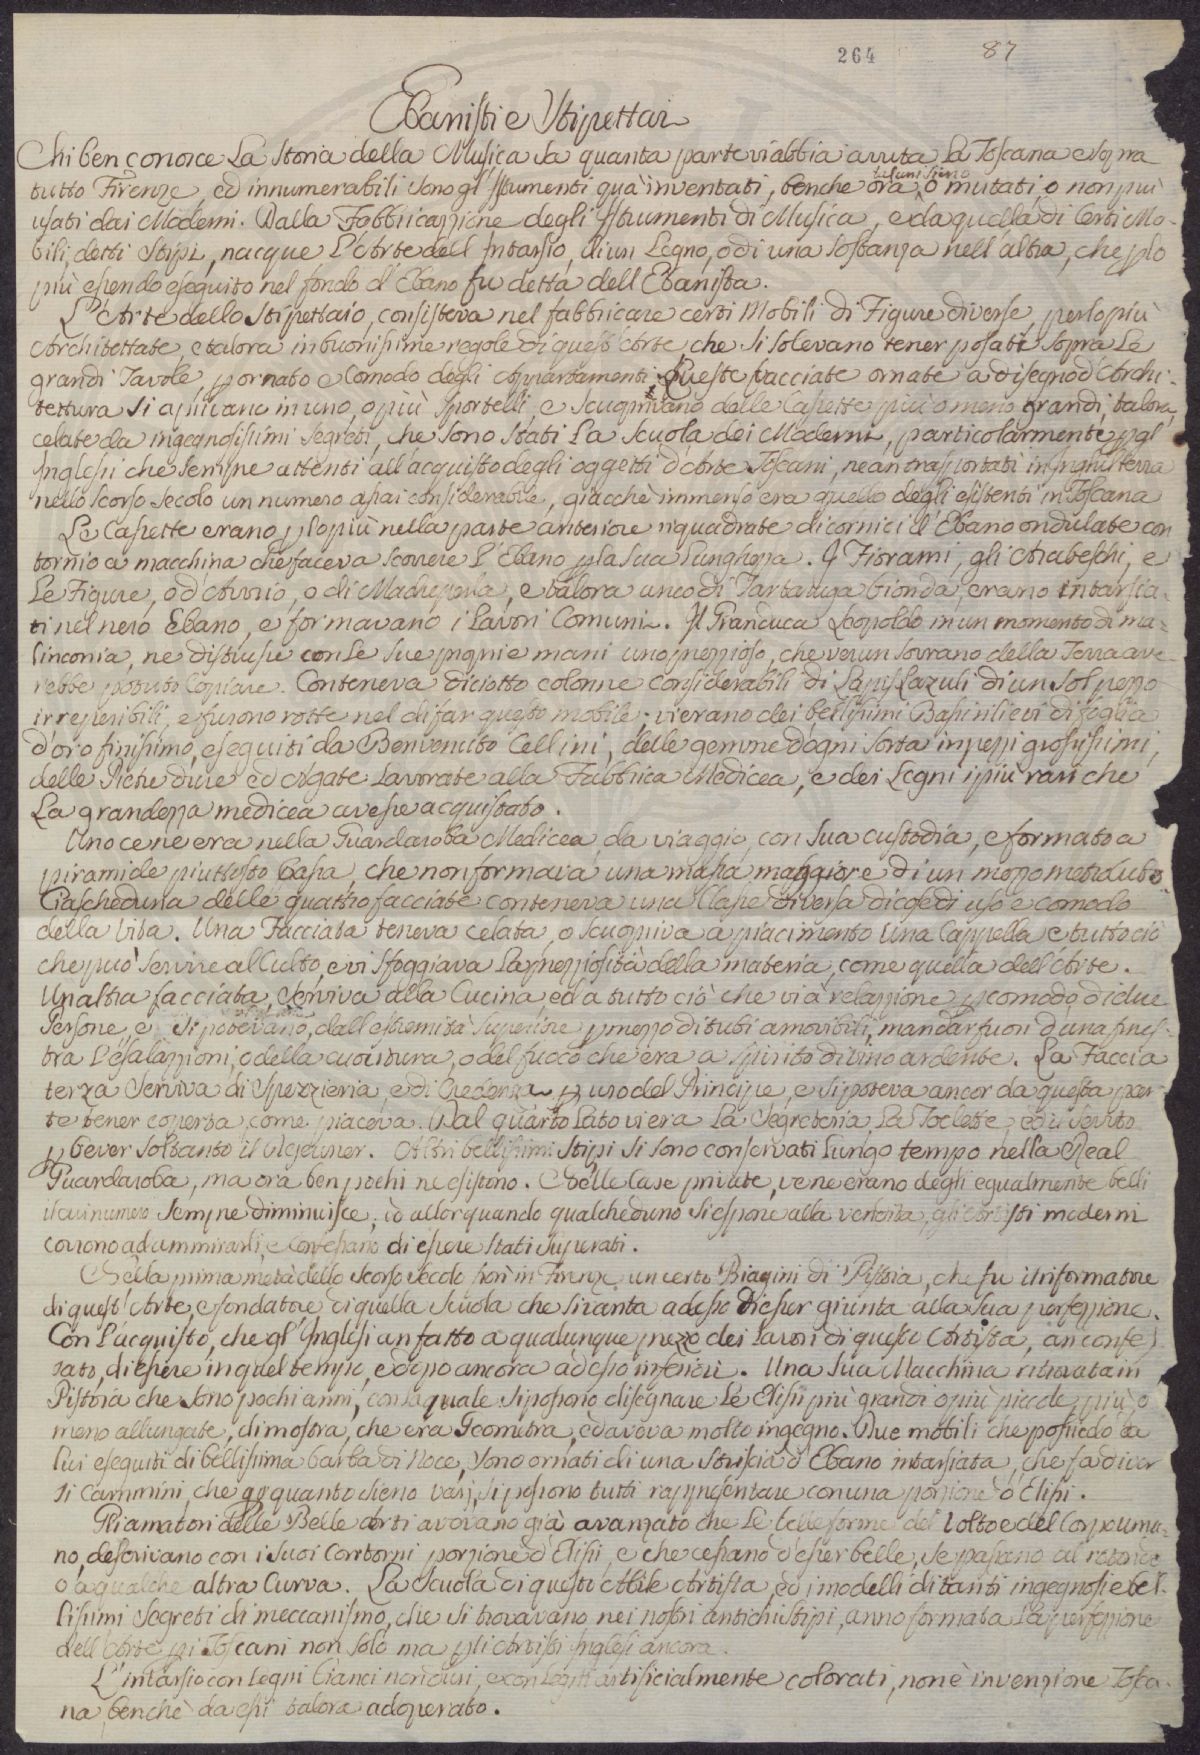 264 87
Ebanisti e Stipettai
Chi ben conosce La Storia della Musica sa quanta parte vi abbia avuta La Toscana e sopra
tutto Firenze, ed innumerabili sono gl'Istrumenti quà inventati, benche ora o mutati, o non più
usati dai Moderni. Dalla Fabbricazzione degli Istrumenti di Musica, e da quella di Certi Mo-
bili, detti Stipi, nacque L'Arte dell'Intarsio, di un Legno, o di una Sostanza nell'altra, che plo
più essendo eseguito nel fondo d'Ebano fu detta dell'Ebanista.
L'Arte dello Stipettaio, consisteva nel fabbricare certi Mobili di Figure diverse, perlopiù
Architettate, e talora in buonissime regole di quest'Arte che si solevano tener posati sopra Le
grandi Tavole, p ornato e Comodo degli Appartamenti. Queste facciate ornate a disegno d'Archi-
tettura si aprivano in uno, o più Sportelli, e Scuoprivano delle Casette più o meno grandi, talora
celate da ingegnosissimi segreti, che sono stati La Scuola dei Moderni, particolarmente p gl'
Inglesi che sempre attenti all'acquisto degli oggetti d'Arte Toscani, ne an trasportati in Inghilterra
nello scorso secolo un numero assai considerabile, giacchè immenso era quello degli esistenti in Toscana
Le Casette erano p lo più nella parte anteriore riquadrate di cornici d'Ebano ondulate con
tornio a macchina che faceva scorrere L'Ebano p la sua Lunghezza. I Fiorami, gli Arabeschi, e
Le Figure, o d'Avorio, o di Madreperla, e talora anco di Tartaruga bionda, erano intarsia-
ti nel nero Ebano, e formavano i Lavori Comuni. Il Granduca Leopoldo in un momento di ma-
linconia, ne distrusse con Le Sue proprie mani uno prezzioso, che verun Sovrano della Terra ave-
rebbe potuto Copiare. Conteneva diciotto colonne Considerabili di Lapislazuli di un Sol pezzo
irreperibili, e furono rotte nel disfar questo mobile; vi erano dei bellissimi Bassirilievi di foglia
d'oro finissimo, eseguiti da Benvenuto Cellini, delle gemme d'ogni sorta in pezzi grossissimi,
delle Pietre dure ed Agate Lavorate alla Fabbrica Medicea, e dei Legni i più rari che
La grandezza medicea avesse acquistato.
Uno ce ne era nella Guardaroba Medicea da viaggio, con sua custodia, e formato a
piramide piuttosto bassa, che non formava una massa maggiore di un mezzo metro cubo
Ciascheduna delle quattro facciate conteneva una Classe diversa di cose di uso e comodo
della Vita. Una Facciata teneva celata, o scuopriva a piacimento Una Cappella e tutto ciò
che può servire al Culto, e vi sfoggiava La prezziosità della materia, come quella dell'Arte.
Un'altra facciata, serviva alla Cucina, ed a tutto ciò che vi à relazzione p comodo di due
Persone, e si potevano, dall'estremità superiore p mezzo di tubi amovibili, mandar fuori d'una fines-
tra L'esalazzioni, o della cucitura, o del fuoco che era a spirito di vino ardente. La Faccia
terza Serviva di Spezzieria, e di Credenza p uso del Principe, e si poteva ancor da questa par-
te tener coperta, come piaceva. Dal quarto Lato vi era La Segreteria, La Toelette, ed il servito
p bever soltanto il Dejeuner. Altri bellissimi Stipi si sono conservati Lungo tempo nella Real
Guardaroba, ma ora ben pochi ne esistono. Nelle Case private, ve ne erano degli egualmente belli
il cui numero sempre diminuisce, ed allorquando qualcheduno si espone alla vendita, gli Artisti moderni
corrono ad ammirarli, e Confessano di essere stati superati.
Nella prima metà dello scorso secolo fiorì in Firenze un certo Biagini di Pistoia, che fu il riformatore
di quest'Arte, e fondatore di quella Scuola che si vanta adesso d'esser giunta alla sua perfezzione.
Con L'acquisto, che gl'Inglesi an fatto a qualunque prezzo dei Lavori di questo Artista, an confes-
sato, di essere in quel tempo, e dopo ancora adesso inferiori. Una Sua Macchina ritrovata in
Pistoia che sono pochi anni, con la quale si possono disegnare Le Elissi più grandi o più piccole, più o
meno allungate, dimostra, che era Geometra, ed aveva molto ingegno. Due mobili che possiedo da
Lui eseguiti di bellissima barba di Noce, sono ornati di una striscia d'Ebano intarsiata, che fa diver
si Cammini, che p quanto sieno varj, si possono tutti rappresentare con una porzione d'Elissi.
Gli amatori delle Belle Arti avevano già avanzato che Le belle forme del Volto e del Corpo uma-
no, descrivano con i suoi Contorni porzione d'Elissi, e che cessano d'esser belle, se passano al rotondo
o a qualche altra Curva. La Scuola di questo Abile Artista, ed i modelli di tanti ingegnosi e bel-
lissimi segreti di meccanismo, che si trovavano nei nostri antichi stipi, anno formata La perfezzione
dell'Arte p i Toscani non solo, ma p gli Artisti Inglesi ancora.
L'intarsio con Legni bianci non duri, e con Legni artificialmente colorati, non è invenzione Tosca-
na, benchè da essi talora adoperato.